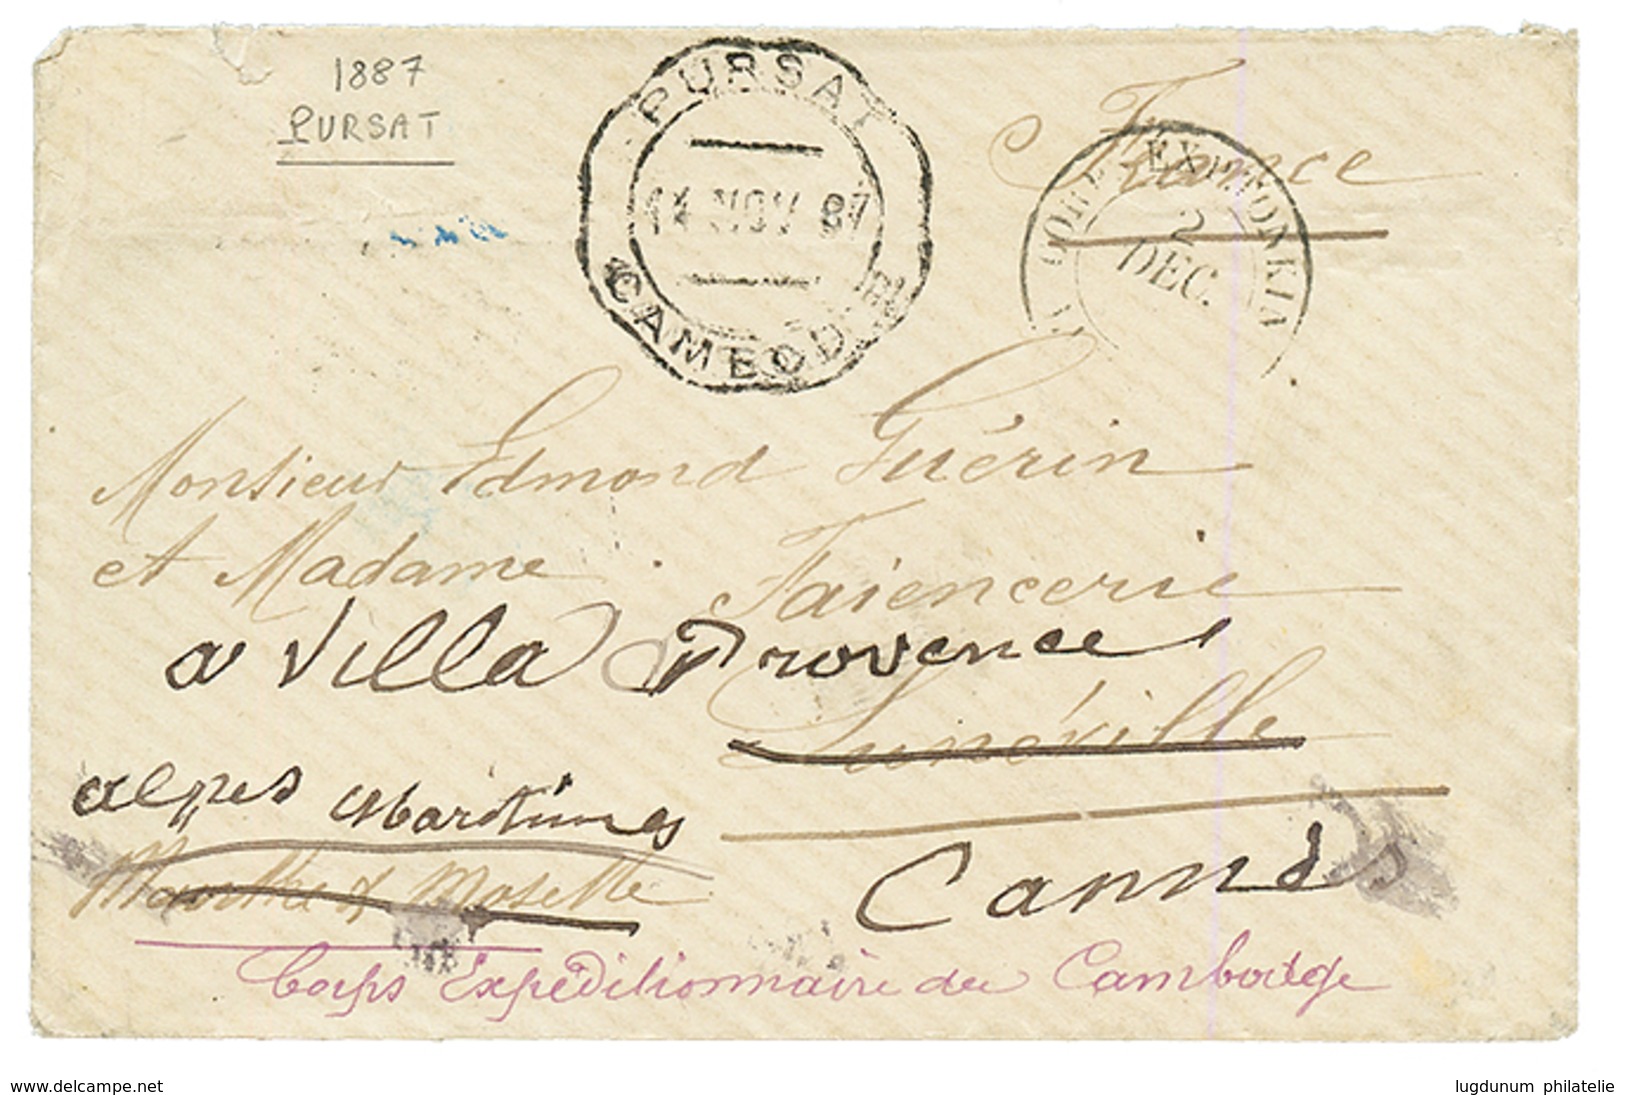 1887
PURSAT
PURSAT
14 NOV 87
CAMBODGE
France
CORR. EXP. TONKIN
2
DEC.
Monsieur Edmond Guérin
et Madame Faiencerie
a Villa Provence
Lunéville
Alpes Maritimes
Cannes
Meurthe & Moselle
Corps Expéditionnaire du Cambodge
www.delcampe.net
lugdunum philatelie